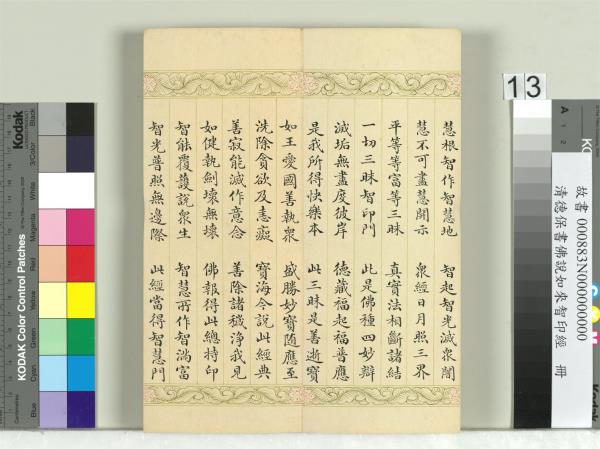 慧根智作智慧地　智起智光滅衆闇
慧不可盡慧開示　衆經日月照三界
平等等富等三昧　真實法相斷諸結
一切三昧智印門　此是佛種四妙辯
滅垢無盡度彼岸　德藏福起福普應
是我所得快樂本　此三昧是善逝寶
如王愛國善執衆　威勝妙寶隨應至
洗除貪欲及恚癡　寶海今說此經典
善寂能滅作意念　善除諸穢淨我見
如健執劍壞無壞　佛報得此總持印
智能覆護說衆生　智慧所作智滿富
智光普照無邊際　此經當得智慧門
13
故書 000883N000000000
清德保書佛說如來智印經 冊
Kodak
KODAK Color Control Patches
Blue
Cyan
Green
Yellow
Red
Magenta
White
3/Color
Black
A
1
2